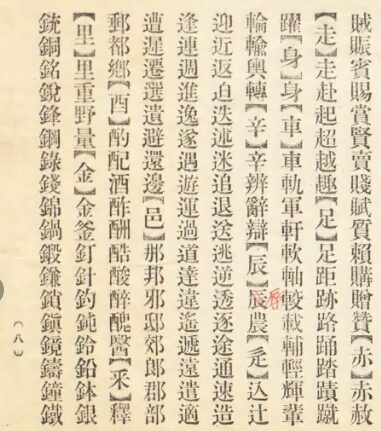 賊賑賓賜賞賢賣賤賦質賴購贈贊【赤】赤赦
【走】走赴起超越趣【足】足距跡路踊踏蹟蹴
躍【身】身【車】車軌軍軒軟軸較載輔輕輝輩
輪輸輿轉【辛】辛辨辭辯【辰】辰農【辵】込辻
辱
迎近返迫迭述迷追退送逃逆透逐途通速造
逢連週進逸遂遇遊運過道達違遙遞遠遣適
遭遲遷選遺避還邊【邑】那邦邪邸郊郎郡部
郵都鄉【酉】酌配酒酢酬酷酸醉醜醫【釆】釋
【里】里重野量【金】金釜釘針釣鈍鈴鉛鉢銀
銃銅銘銳鋒鋼錄錢錦鍋鍛鎌鎖鎭鏡鑄鐘鐵
〔八〕